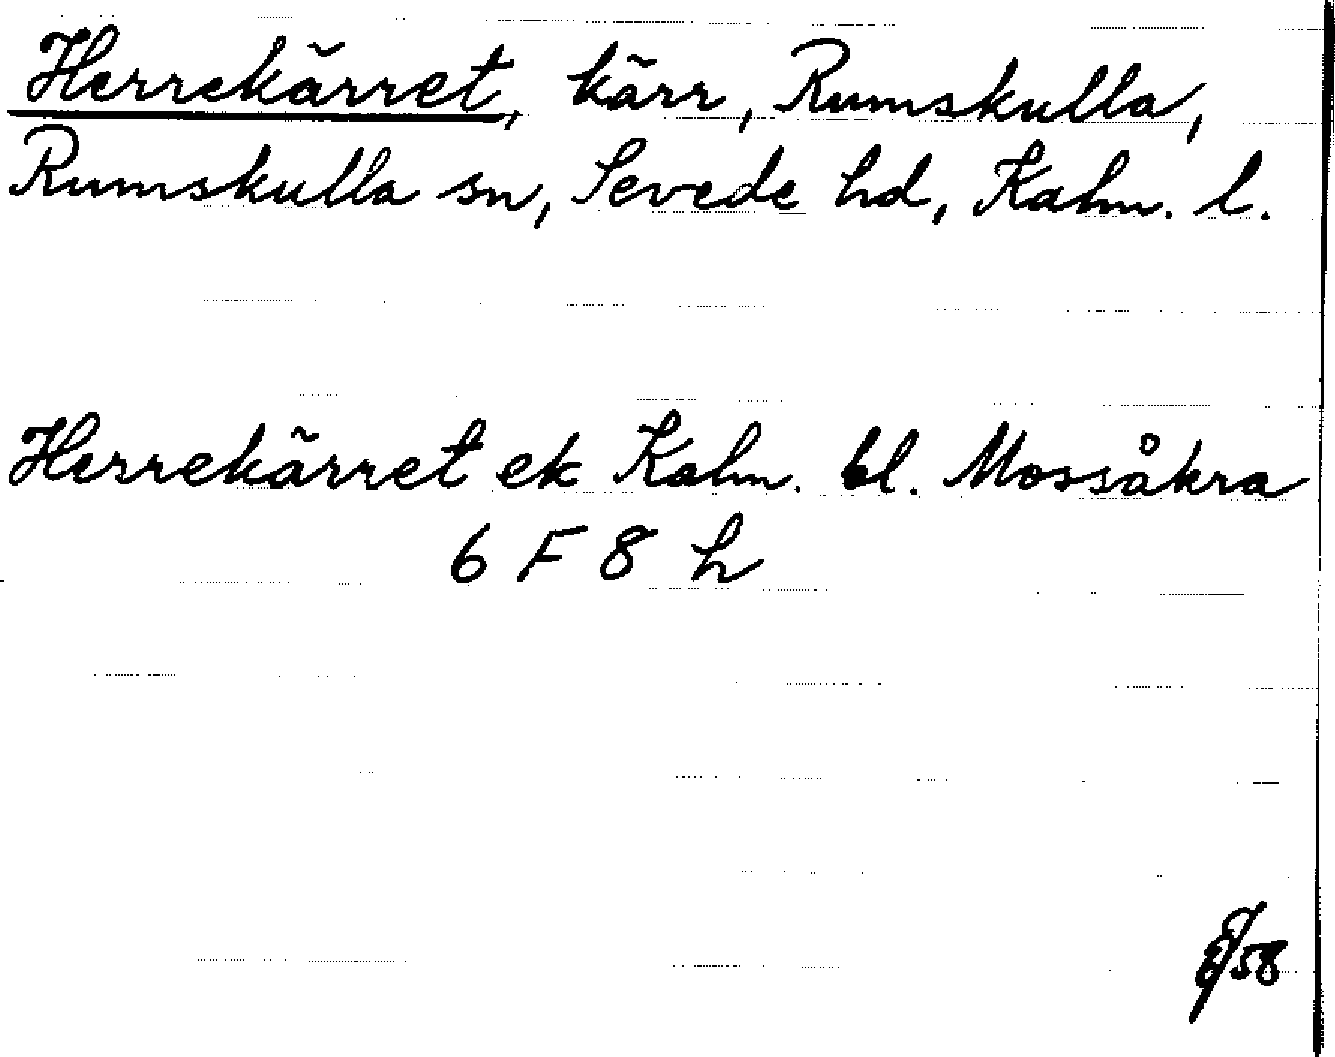 Herrekärret, kärr, Rumskulla,
Rumskulla sn, Sevede hd, Kalm. l.
Herrekärret ek Kalm. bl. Mossåkra
6 F 8 h
58